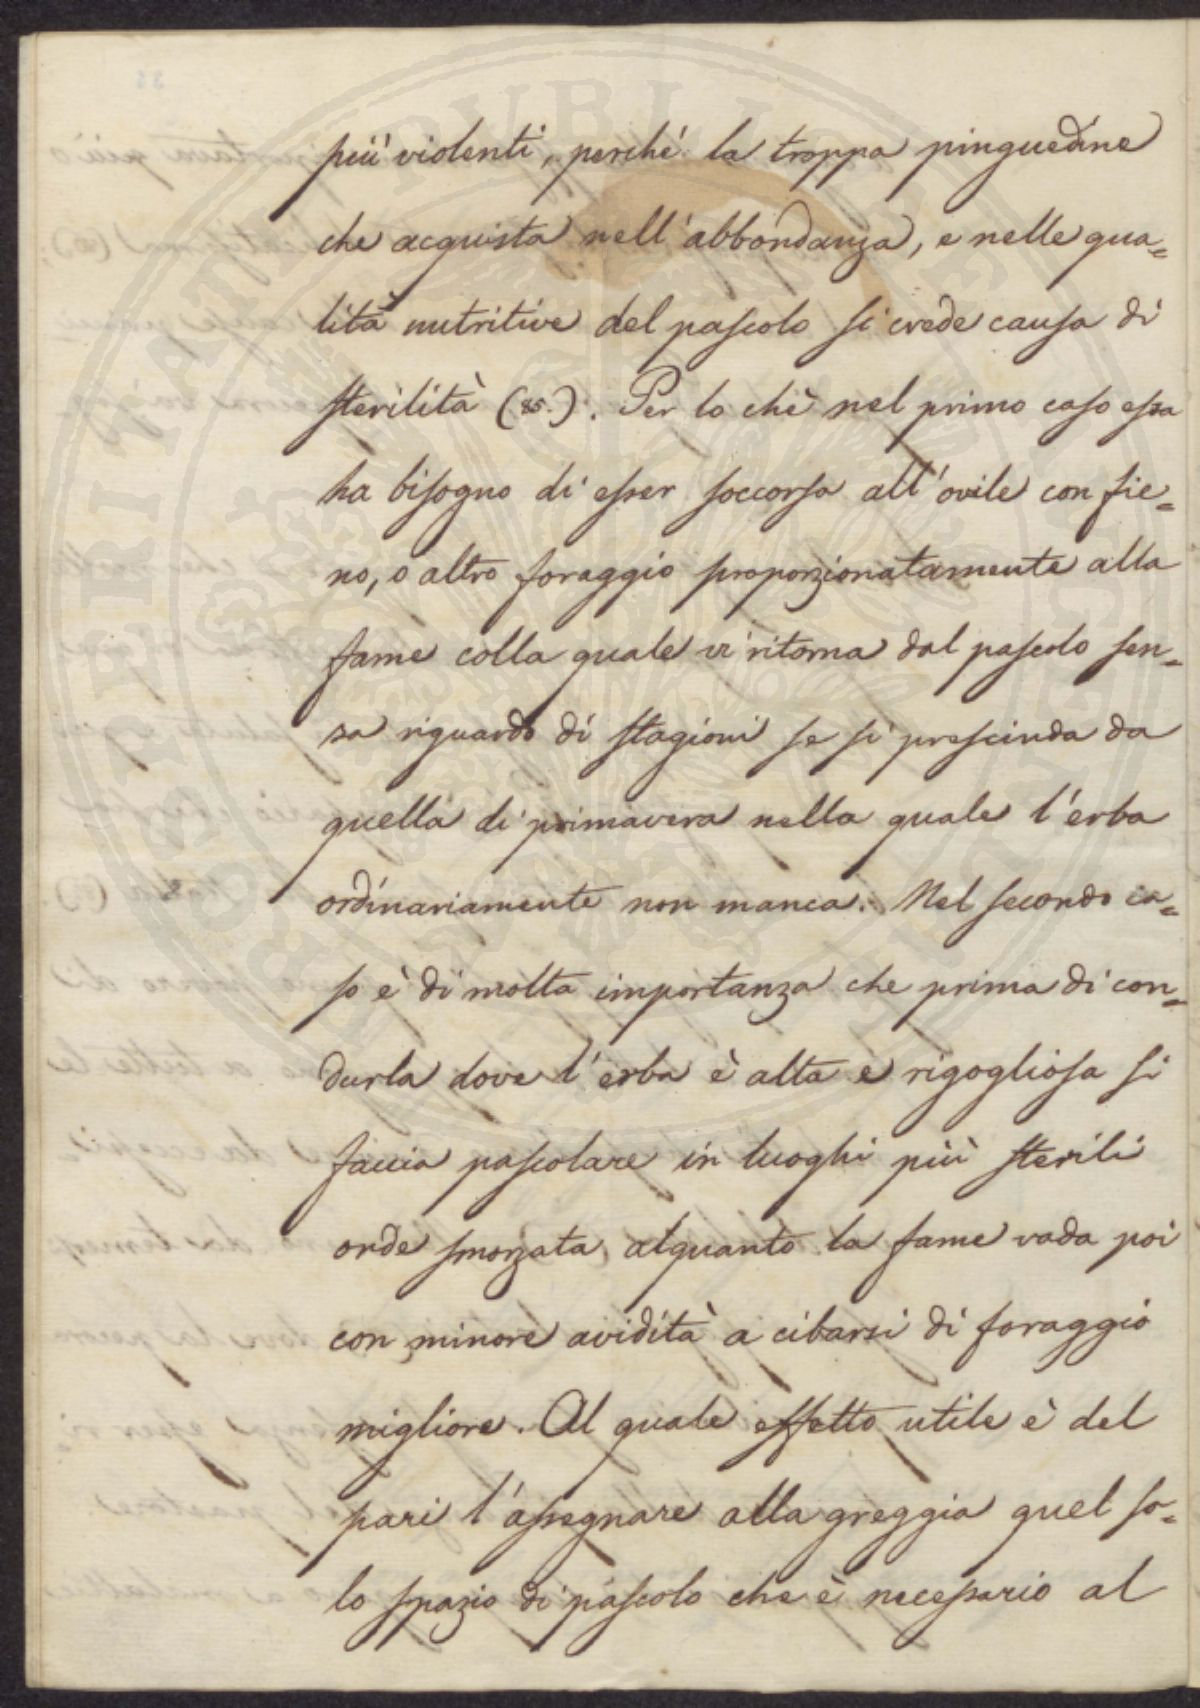 più violenti, perchè la troppa pinguedine
che acquista nell'abbondanza, e nelle qua=
lità nutritive del pascolo si crede causa di
sterilità (85.). Per lo chè nel primo caso essa
ha bisogno di esser soccorsa all'ovile con fie=
no, o altro foraggio proporzionatamente alla
fame colla quale vi ritorna dal pascolo sen=
za riguardo di stagioni se si prescinda da
quella di primavera nella quale l'erba
ordinariamente non manca. Nel secondo ca=
so è di molta importanza che prima di con=
durla dove l'erba è alta e rigogliosa si
faccia pascolare in luoghi più sterili
onde smorzata alquanto la fame vada poi
con minore avidità a cibarsi di foraggio
migliore. Al quale effetto utile è del
pari l'assegnare alla greggia quel so=
lo spazio di pascolo che è necessario al